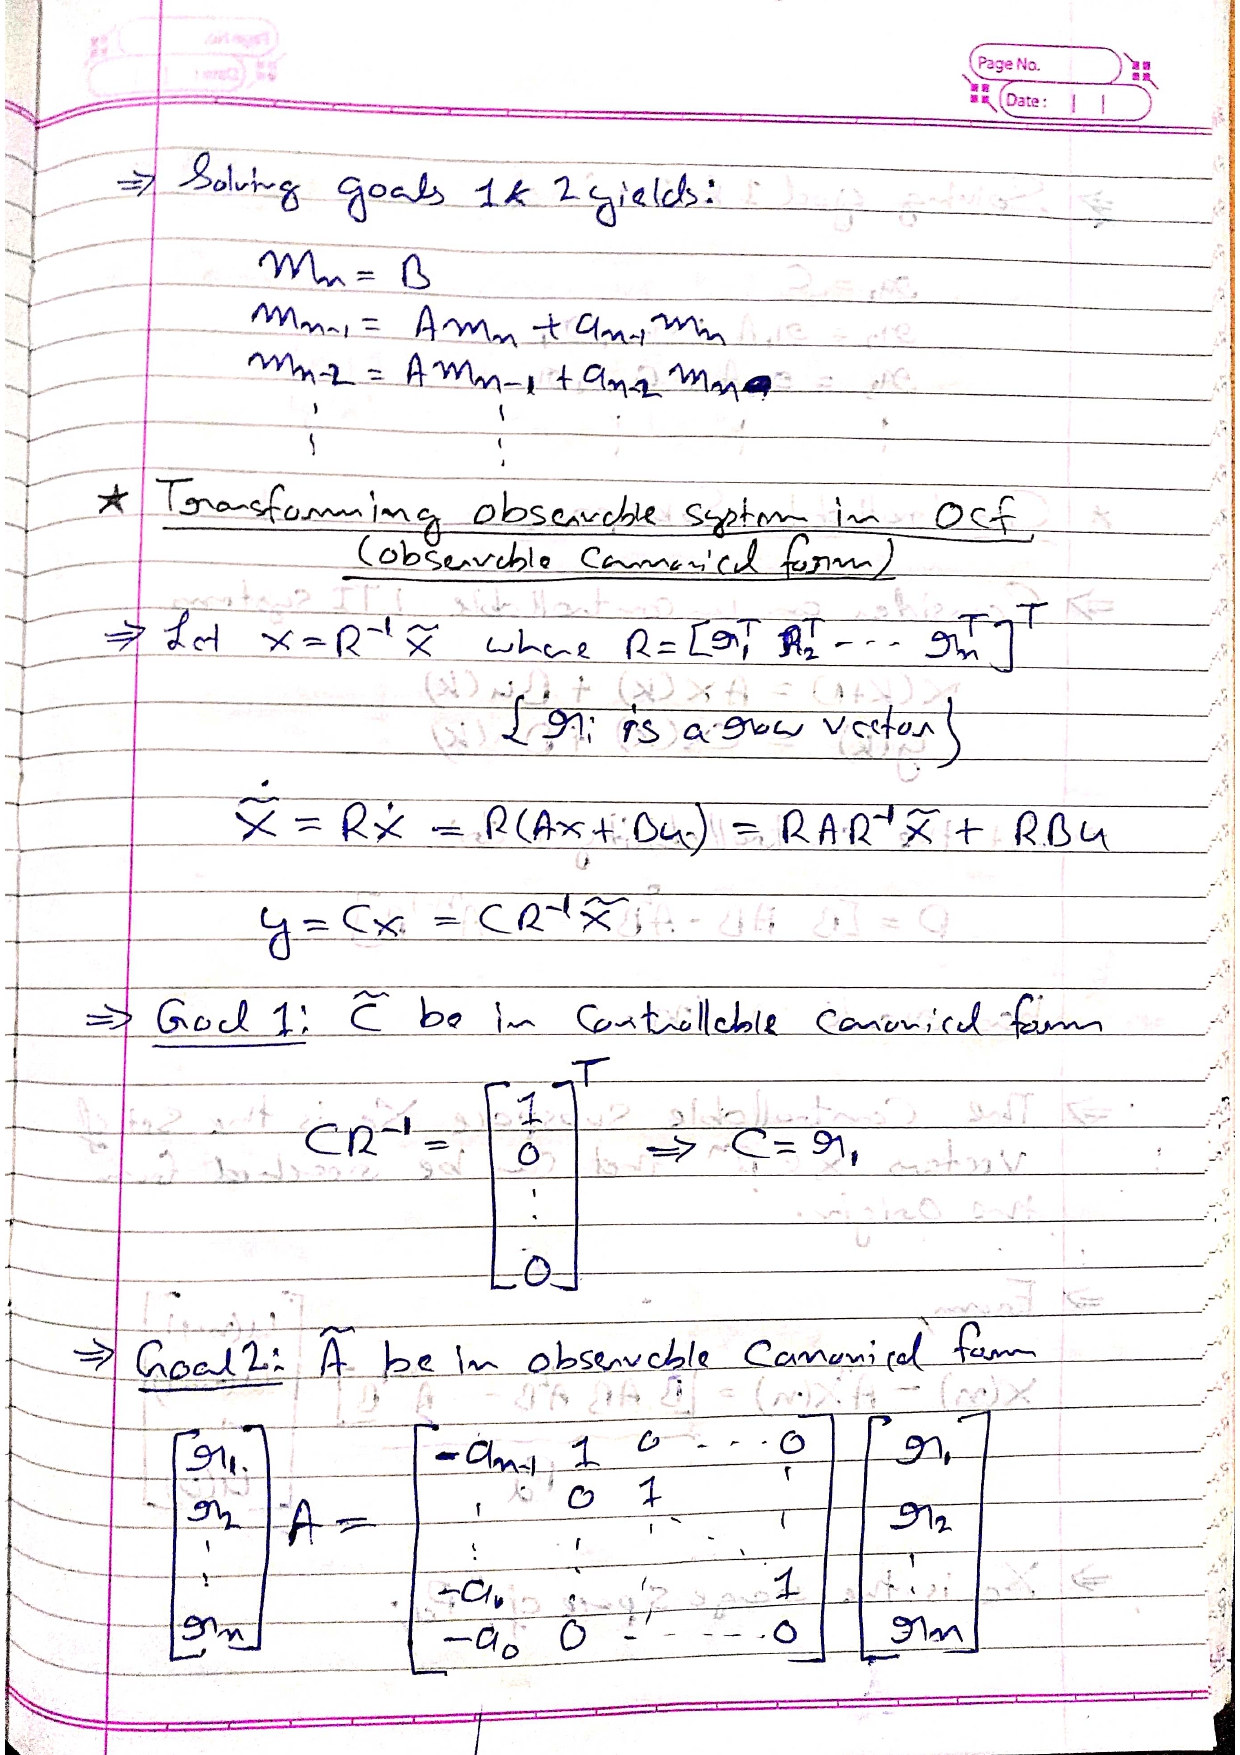 Page No.
Date :
⇒ Solving goals 1 & 2 yields:
mₙ = B
mₙ₋₁ = Amₙ + aₙ₋₁ mₙ
mₙ₋₂ = Amₙ₋₁ + aₙ₋₂ mₙ
⋮ ⋮
★ Transforming observable system in OCF
(observable Canonical form)
⇒ Let x = R⁻¹ x̃ where R = [r₁ᵀ R₂ᵀ --- rₙᵀ]ᵀ
{ rᵢ is a row vector }
x̃̇ = Rẋ = R(Ax + Bu) = RAR⁻¹ x̃ + RBu
y = Cx = CR⁻¹ x̃
⇒ Goal 1: C̃ be in Controllable canonical form
CR⁻¹ = [1 0 ⋮ 0]ᵀ ⇒ C = r₁
⇒ Goal 2: Ã be in observable Canonical form
[r₁] A = [-aₙ₋₁ 1 0 --- 0] [r₁]
[r₂] [⋮ 0 1 ⋮] [r₂]
[⋮] [-a₁ ⋮ ⋮ 1] [⋮]
[rₙ] [-a₀ 0 ----- 0] [rₙ]